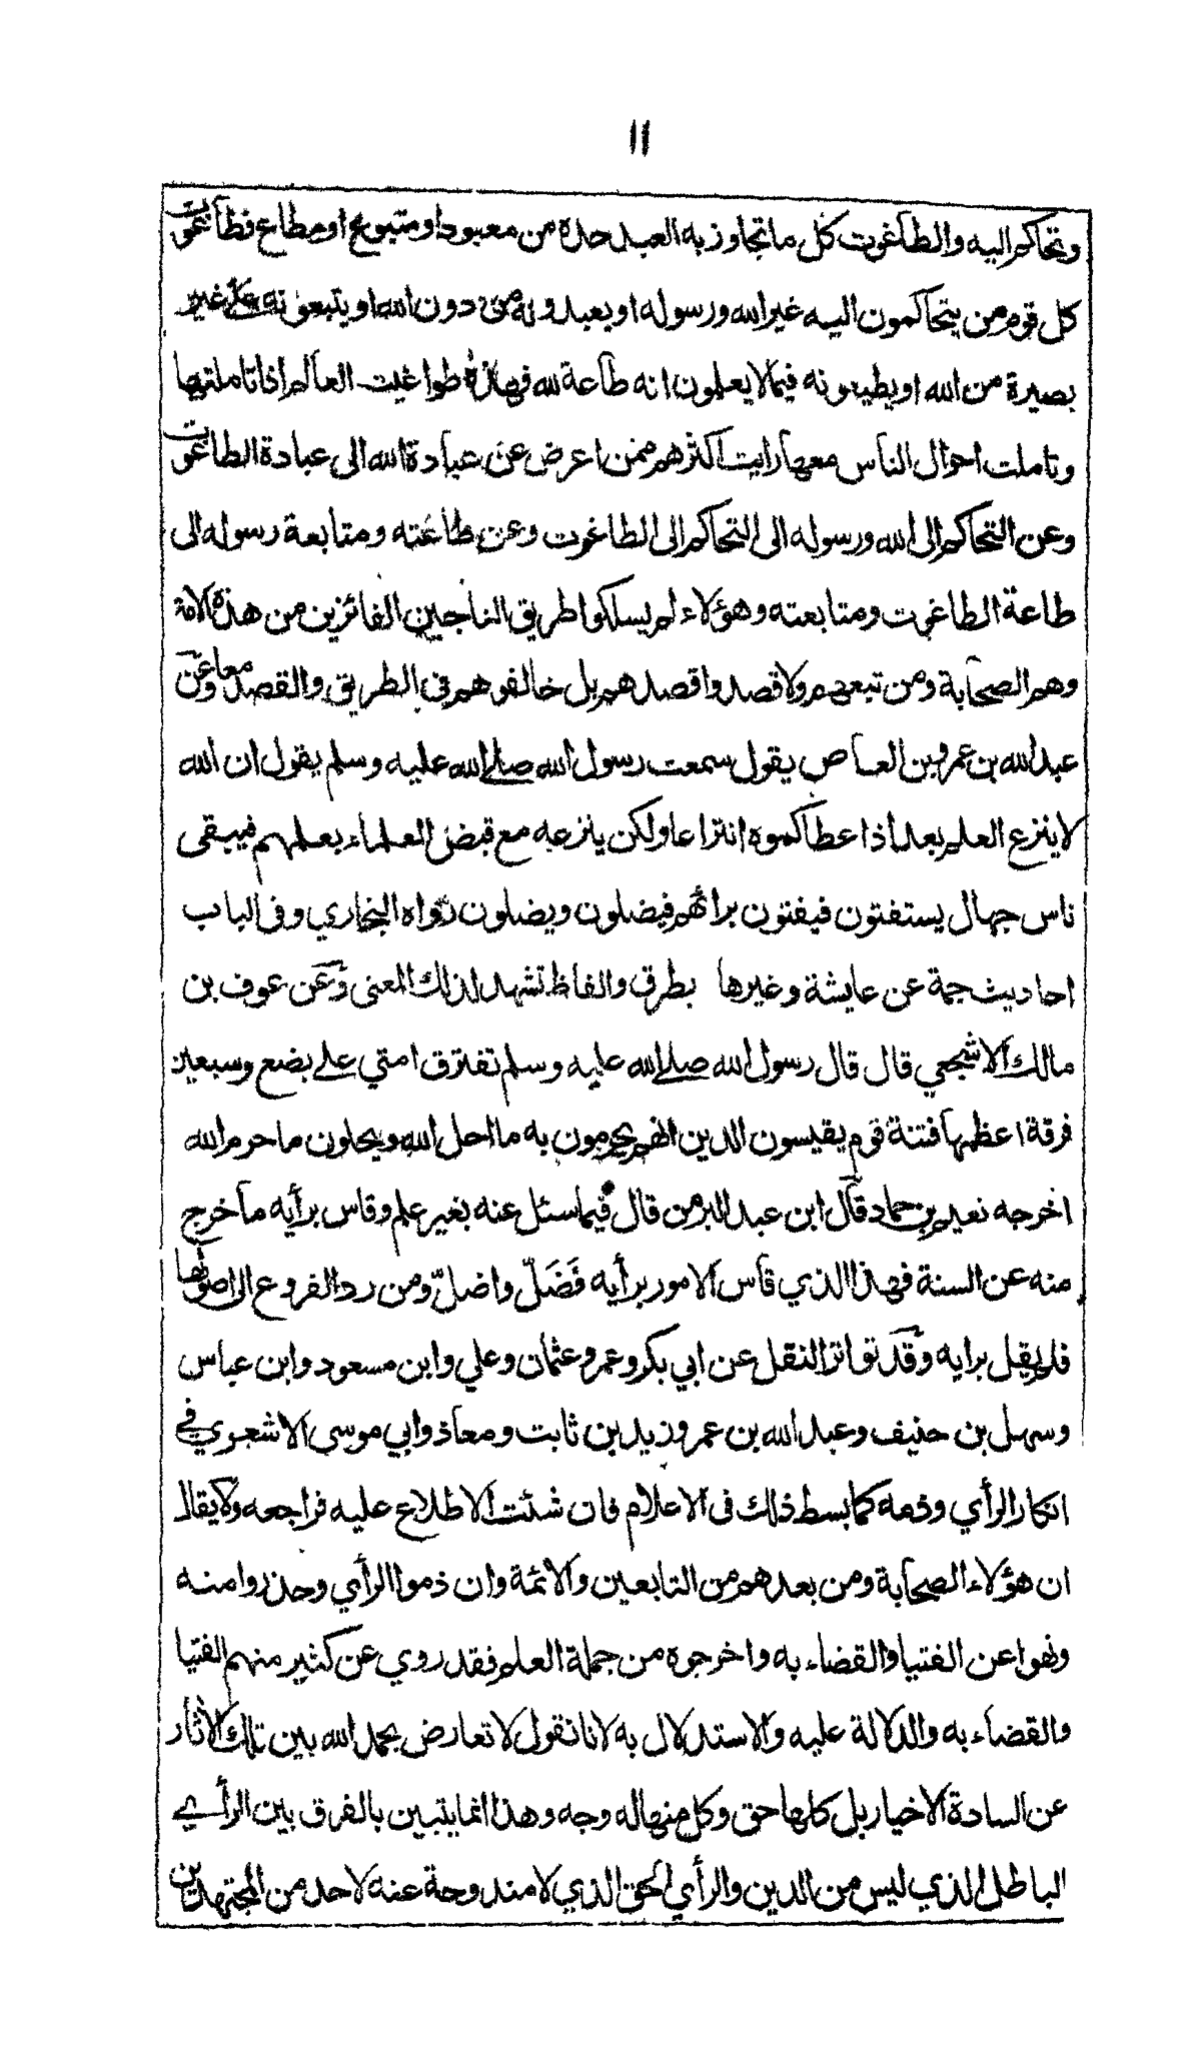 ١١
وتحاكم اليه والطاغوت كل ما تجاوز به العبد حده من معبود او متبوع او مطاع فطاغوت
كل قوم من يتحاكمون اليه غير الله ورسوله او يعبدونه من دون الله او يتبعونه على غير
بصيرة من الله او يطيعونه فيما لا يعلمون انه طاعة لله فهذه طواغيت العالم اذا تاملتها
وتاملت احوال الناس معها رايت اكثرهم ممن اعرض عن عبادة الله الى عبادة الطاغوت
وعن التحاكم الى الله ورسوله الى التحاكم الى الطاغوت وعن طاعته ومتابعة رسوله الى
طاعة الطاغوت ومتابعته وهؤلاء لم يسلكوا طريق الناجين الفائزين من هذه الامة
وهم الصحابة ومن تبعهم ولا قصدوا قصدهم بل خالفوهم في الطريق والقصد معا وعن
عبد الله بن عمرو بن العاص يقول سمعت رسول الله صلى الله عليه وسلم يقول ان الله
لا ينزع العلم بعد اذ اعطاكموه انتزاعا ولكن ينزعه مع قبض العلماء بعلمهم فيبقى
ناس جهال يستفتون فيفتون برائهم فيضلون ويضلون رواه البخاري وفي الباب
احاديث جمة عن عايشة وغيرها بطرق والفاظ تشهد لذلك المعنى وعن عوف بن
مالك الاشجعي قال قال رسول الله صلى الله عليه وسلم تفترق امتي على بضع وسبعين
فرقة اعظمها فتنة قوم يقيسون الدين الهم يحرمون به ما احل الله ويحلون ما حرم الله
اخرجه نعيم بن حماد قال ابن عبد البر من قال فيما سئل عنه بغير علم وقاس برأيه ما خرج
منه عن السنة فهذا الذي قاس الامور برأيه فَضَلّ واضلّ ومن رد الفروع الى اصولها
فلم يقل برايه وقد تواتر النقل عن ابي بكر وعمر وعثمان وعلي وابن مسعود وابن عباس
وسهل بن حنيف وعبد الله بن عمر وزيد بن ثابت ومعاذ وابي موسى الاشعري في
انكار الرأي وذمه كما بسط ذلك في الاعلام فان شئت الاطلاع عليه فراجعه ولا يقال
ان هؤلاء الصحابة ومن بعدهم من التابعين والائمة وان ذموا الرأي وحذروا منه
ونهوا عن الفتيا والقضاء به واخرجوه من جملة العلم فقد روي عن كثير منهم الفتيا
والقضاء به والدلالة عليه والاستدلال به لانا نقول لا تعارض بحمد الله بين تلك الاثار
عن السادة الاخيار بل كلها حق وكل منها له وجه وهذا انما يتبين بالفرق بين الرأي
الباطل الذي ليس من الدين والرأي الحق الذي لا مندوحة عنه لاحد من المجتهدين